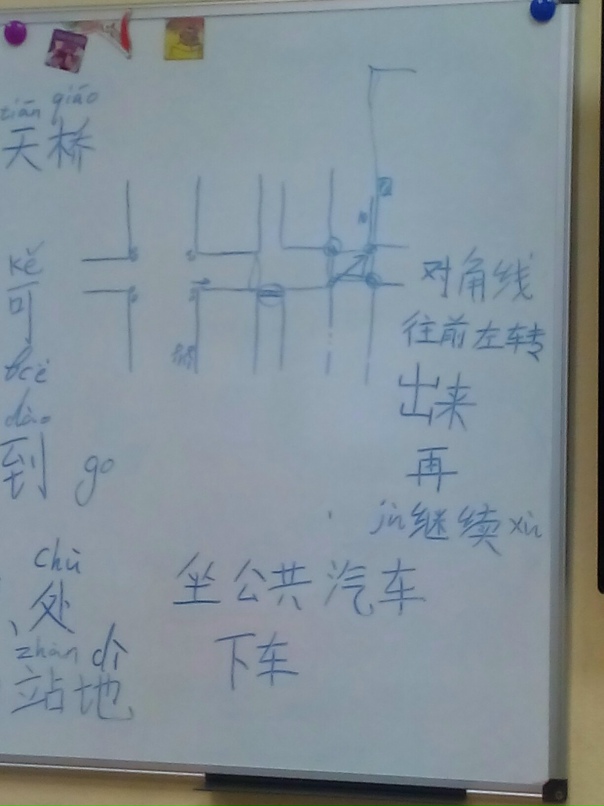 tiān qiáo
天桥
kě
可
dào
到 go
chù
处
zhàn dì
站地
对角线
往前左转
出来
再
jì 继续 xù
坐公共汽车
下车